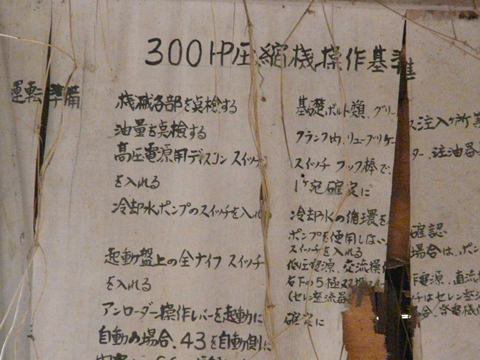 300HP圧縮機操作基準
運転準備
機械各部を点検する
油量を点検する
高圧電源用ディスコンスイッチ
を入れる
冷却水ポンプのスイッチを入れ
起動盤上の全ナイフスイッチ
を入れる
アンローダー操作レバーを起動に
自動の場合、43を自動側に
基礎ボルト頭、グリー
ス注入ヶ所
クランク内、リューブリケー
ター、注油器
スイッチフック棒で、
1ヶ宛確実に
冷却水の循環を
確認
ポンプを使用しない
場合は、ポン
スイッチを入れる
低圧電源、交流操
作電源、直流
右下の5極双
(セレン整流器
はセレン整流
確実に